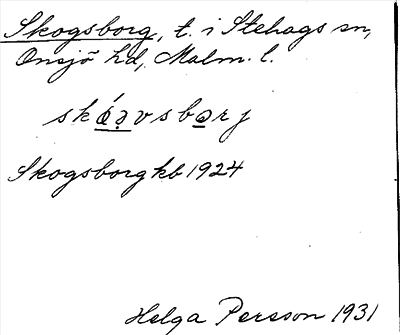 Skogsborg, t. i Stehags sn,
Onsjö hd, Malm. l.
skǿə̣vsbərj
Skogsborg kb 1924
Helga Persson 1931